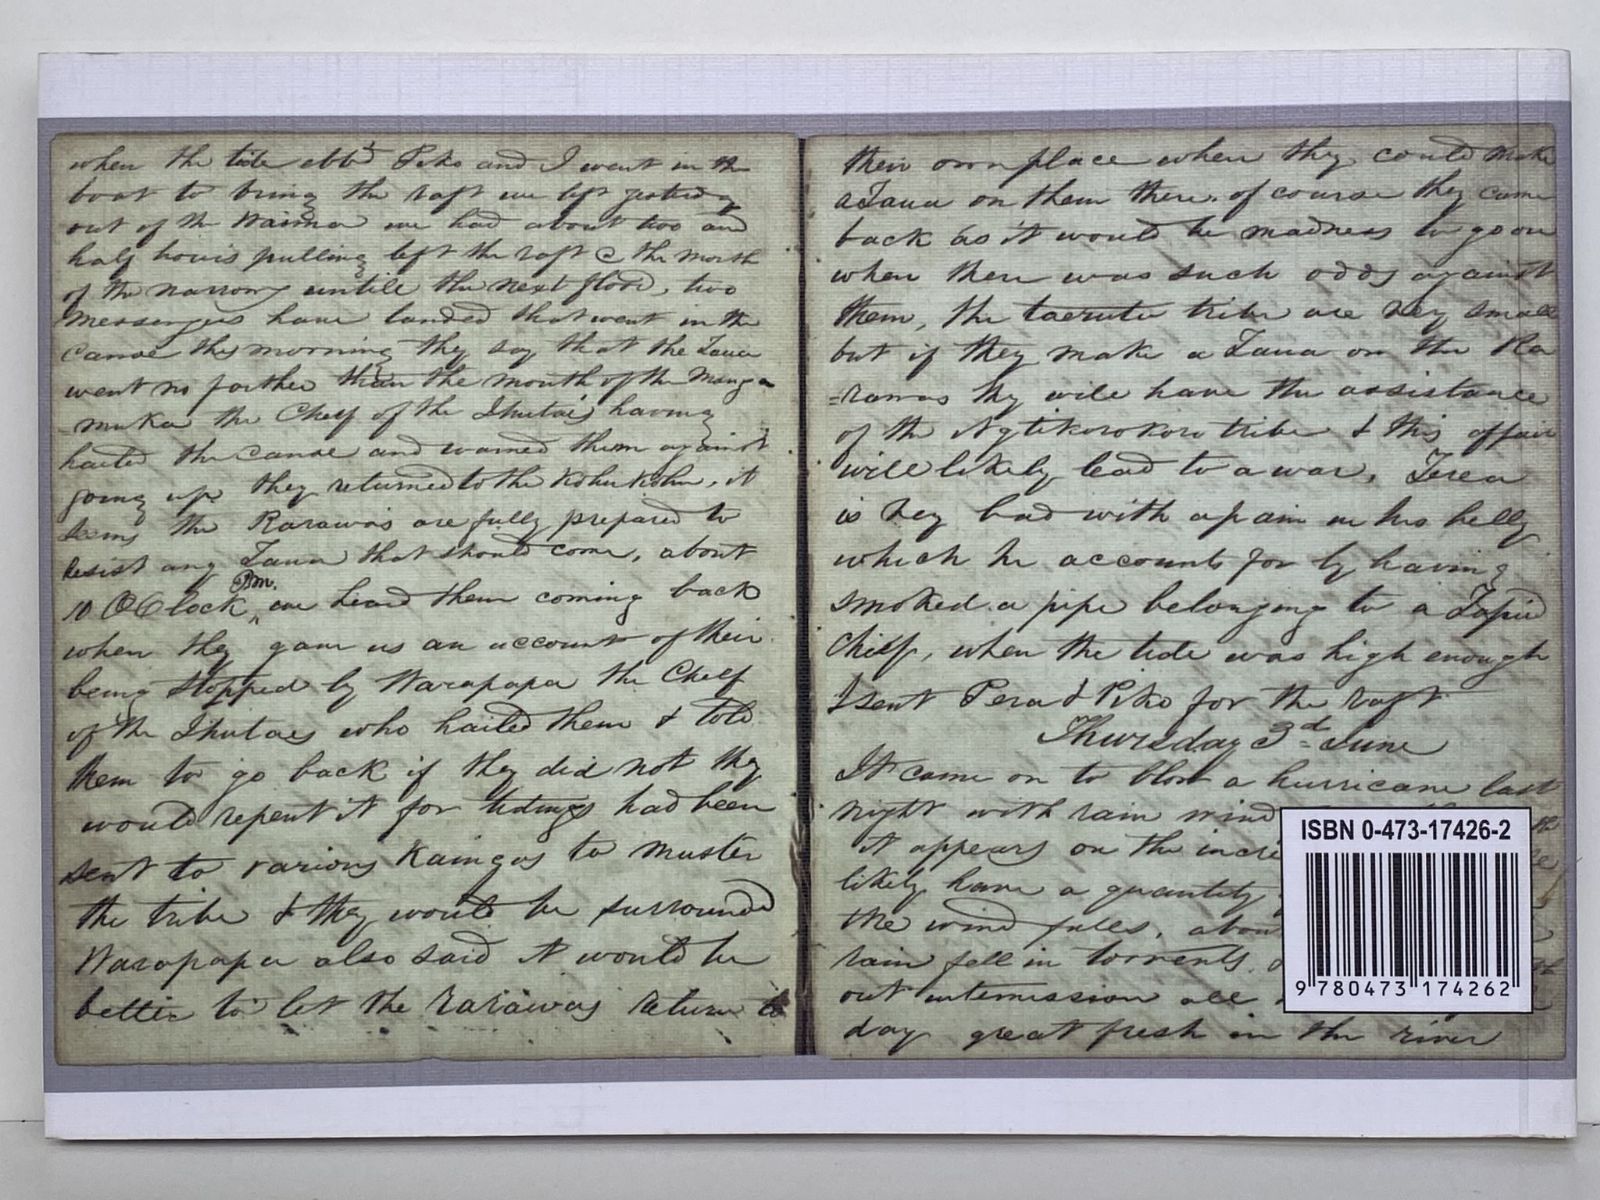 when the tide ebb'd Piko and I went in the
boat to bring the raft we left yesterday
out of the Waima we had about two and
half hours pulling left the raft @ the mouth
of the narrows untill the next flood, two
messengers have landed that went in the
canoe this morning they say that the Taua
went no farther than the mouth of the Manga
=muka the Cheif of the Ihutai's having
hailed the canoe and warned them against
going up they returned to the Kohukohu, it
seems the Rarawas are fully prepared to
resist any Taua that should come, about
Pm.
10 OClock ^ we heard them coming back
when they gave us an account of their
being stopped by Warapapa the Cheif
of the Ihutaes who hailed them & told
them to go back if they did not they
would repent it for tidings had been
sent to various Kaingas to muster
the tribe & they would be surrounded
Warapapa also said it would be
better to let the rarawas return to
their own place when they could make
a Taua on them there, of course they came
back as it would be madness to go on
when there was such odds against
them, the tribe are very small
but if they make a Taua on the Ra
=rawas they will have the assistance
of the Ngtikorokoro tribe & this affair
will likely lead to a war, Terea
is very bad with a pain in his belly
which he accounts for by having
smoked a pipe belonging to a Tapu'd
Cheif, when the tide was high enough
I sent Pera & Piko for the raft
Thursday 3d June
It came on to blow a hurricane last
night with rain wind
it appears on the incre
likely have a quantity
the wind falls, abou
rain fell in torrents,
out intermission all
day great fresh in the river
ISBN 0-473-17426-2
9 780473 174262